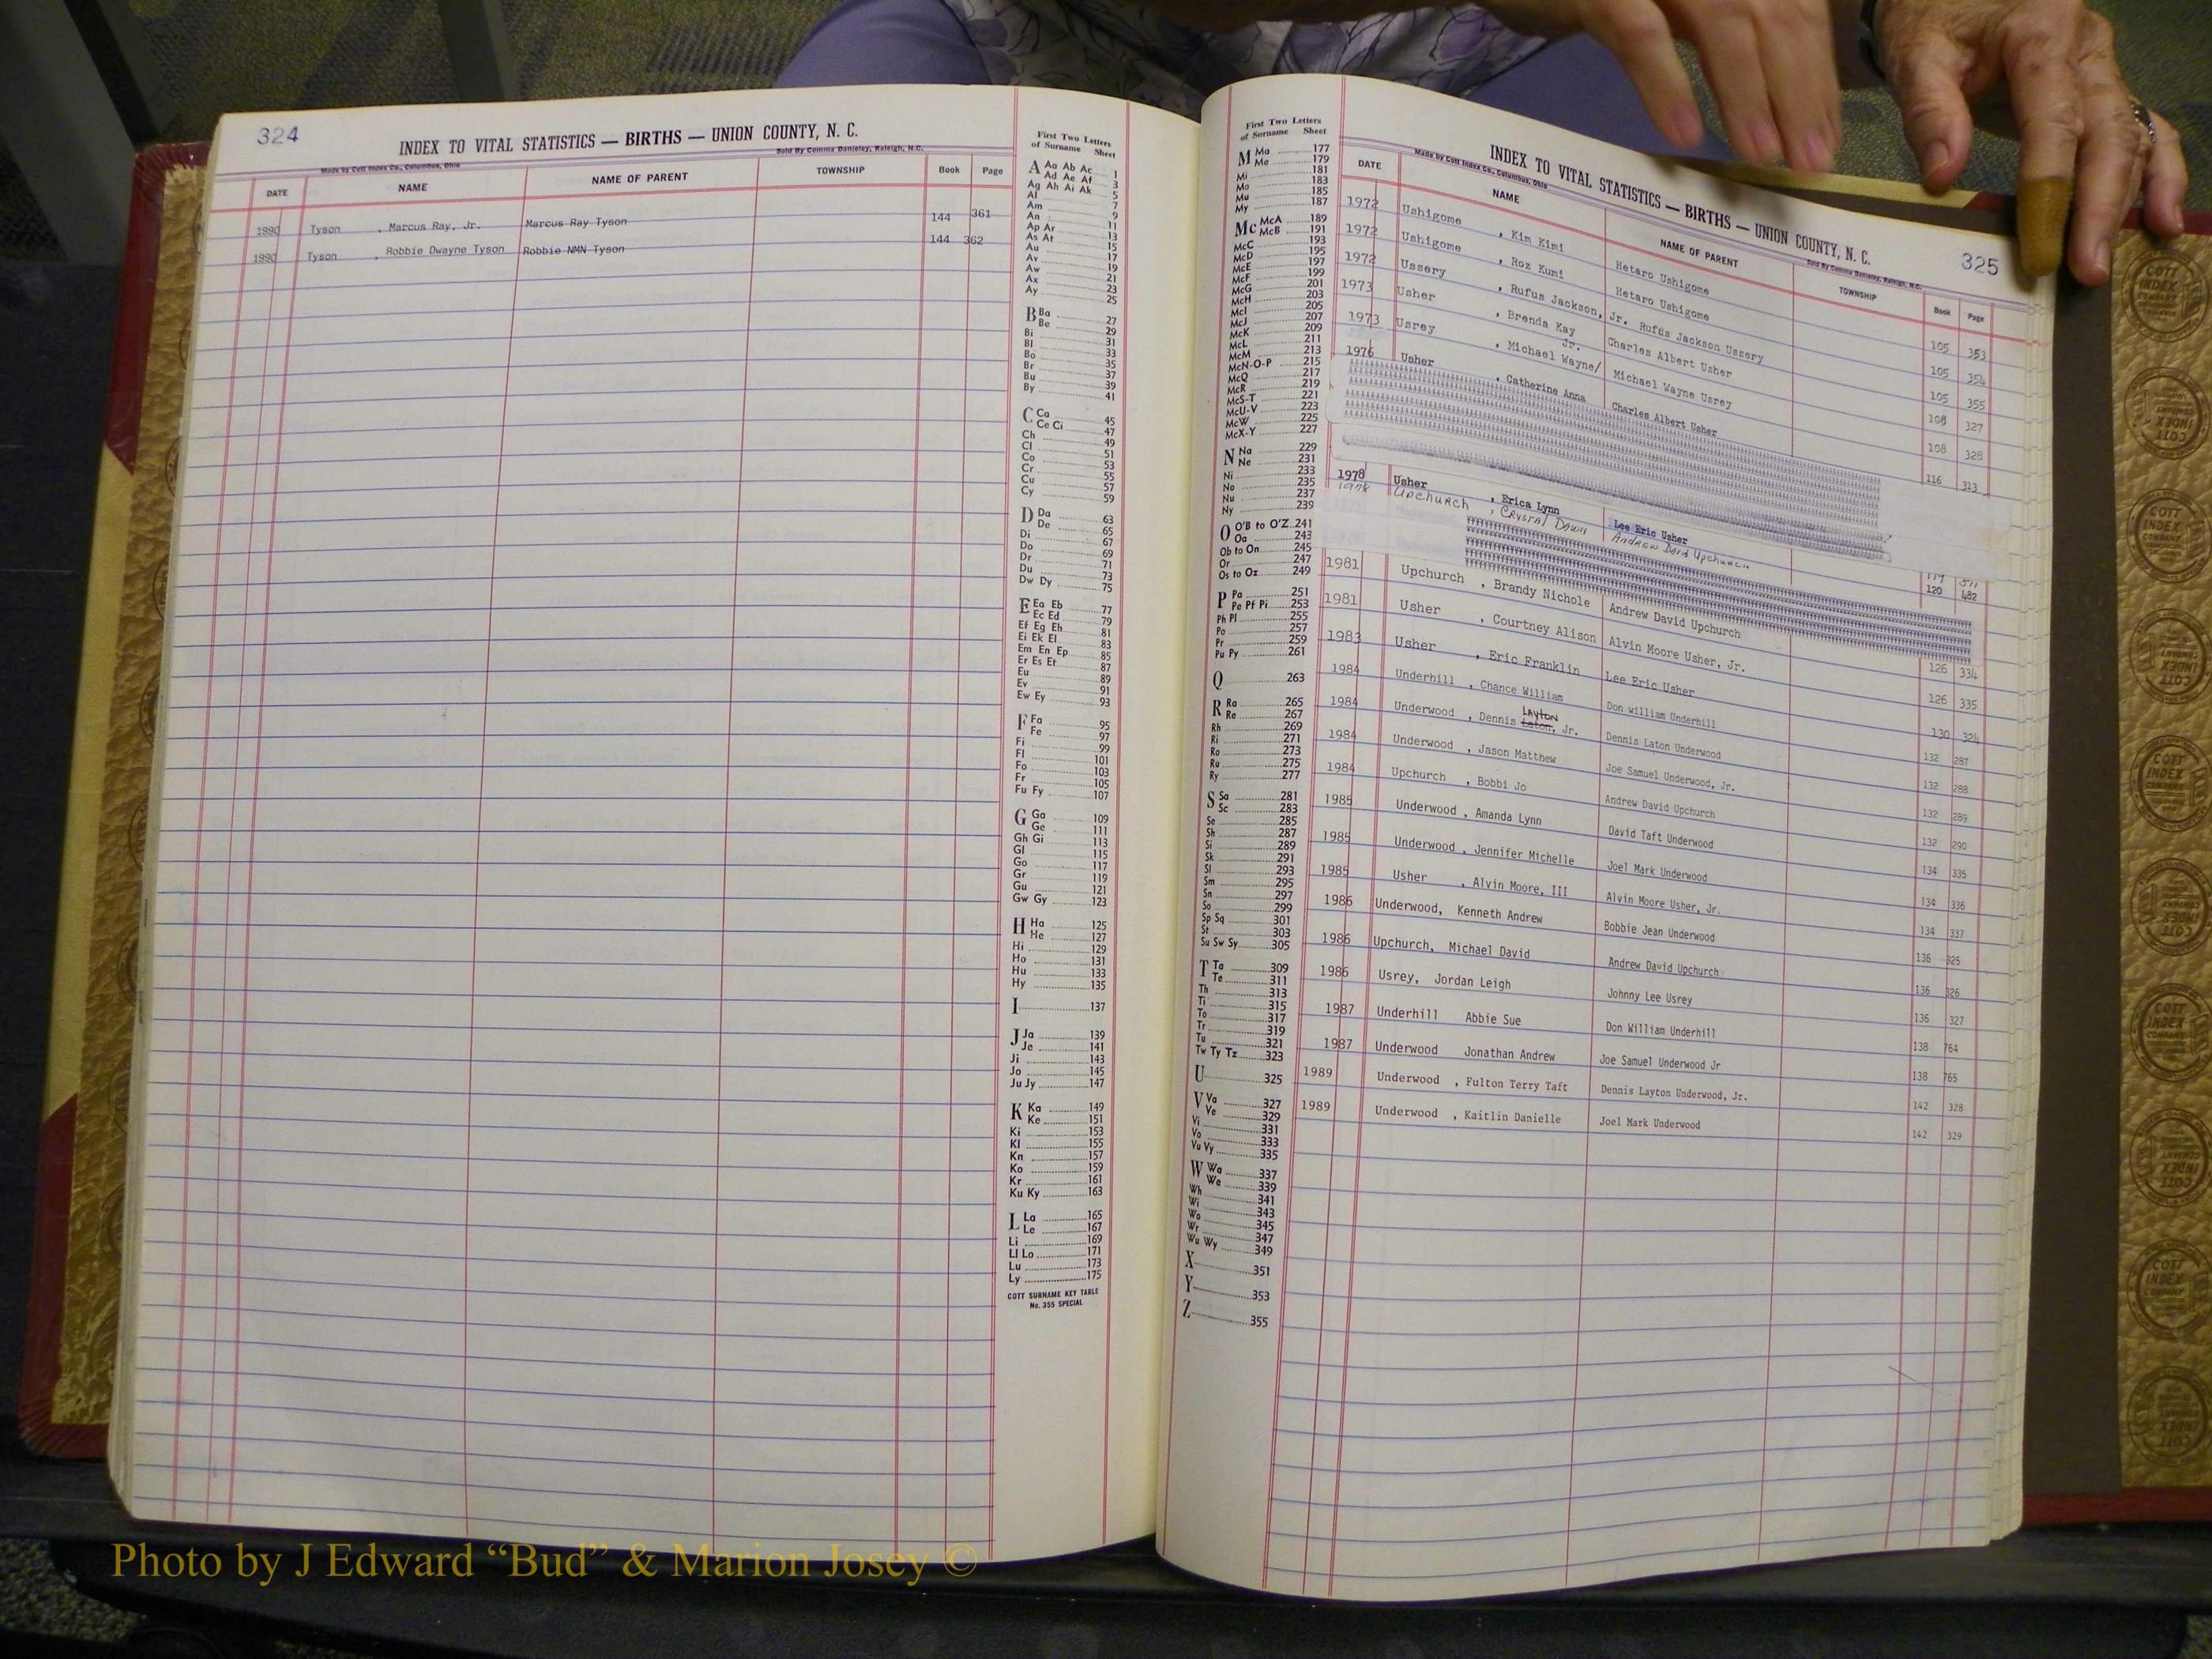 324
INDEX TO VITAL STATISTICS — BIRTHS — UNION COUNTY, N. C.
Made by Cott Index Co., Columbus, Ohio Sold By Comma Danieley, Raleigh, N.C.
DATE NAME NAME OF PARENT TOWNSHIP Book Page
1990 Tyson , Marcus Ray, Jr. Marcus Ray Tyson 144 361
1990 Tyson , Robbie Dwayne Tyson Robbie NMN Tyson 144 362
First Two Letters
of Surname Sheet
A Aa Ab Ac 1
Ad Ae Af 3
Ag Ah Ai Ak 5
Al 7
Am 9
An 11
Ap Ar 13
As At 15
Au 17
Av 19
Aw 21
Ax 23
Ay 25
B Ba 27
Be 29
Bi 31
Bl 33
Bo 35
Br 37
Bu 39
By 41
C Ca 45
Ce Ci 47
Ch 49
Cl 51
Co 53
Cr 55
Cu 57
Cy 59
D Da 63
De 65
Di 67
Do 69
Dr 71
Du 73
Dw Dy 75
E Ea Eb 77
Ec Ed 79
Ef Eg Eh 81
Ei Ek El 83
Em En Ep 85
Er Es Et 87
Eu 89
Ev 91
Ew Ey 93
F Fa 95
Fe 97
Fi 99
Fl 101
Fo 103
Fr 105
Fu Fy 107
G Ga 109
Ge 111
Gh Gi 113
Gl 115
Go 117
Gr 119
Gu 121
Gw Gy 123
H Ha 125
He 127
Hi 129
Ho 131
Hu 133
Hy 135
I 137
J Ja 139
Je 141
Ji 143
Jo 145
Ju Jy 147
K Ka 149
Ke 151
Ki 153
Kl 155
Kn 157
Ko 159
Kr 161
Ku Ky 163
L La 165
Le 167
Li 169
Ll Lo 171
Lu 173
Ly 175
COTT SURNAME KEY TABLE
No. 355 SPECIAL
First Two Letters
of Surname Sheet
M Ma 177
Me 179
Mi 181
Mo 183
Mu 185
My 187
Mc McA 189
McB 191
McC 193
McD 195
McE 197
McF 199
McG 201
McH 203
McI 205
McJ 207
McK 209
McL 211
McM 213
McN-O-P 215
McQ 217
McR 219
McS-T 221
McU-V 223
McW 225
McX-Y 227
N Na 229
Ne 231
Ni 233
No 235
Nu 237
Ny 239
O O'B to O'Z 241
Oa 243
Ob to On 245
Or 247
Os to Oz 249
P Pa 251
Pe Pf Pi 253
Ph Pl 255
Po 257
Pr 259
Pu Py 261
Q 263
R Ra 265
Re 267
Rh 269
Ri 271
Ro 273
Ru 275
Ry 277
S Sa 281
Sc 283
Se 285
Sh 287
Si 289
Sk 291
Sl 293
Sm 295
Sn 297
So 299
Sp Sq 301
St 303
Su Sw Sy 305
T Ta 309
Te 311
Th 313
Ti 315
To 317
Tr 319
Tu 321
Tw Ty Tz 323
U 325
V Va 327
Ve 329
Vi 331
Vo 333
Vu Vy 335
W Wa 337
We 339
Wh 341
Wi 343
Wo 345
Wr 347
Wu Wy 349
X 351
Y 353
Z 355
INDEX TO VITAL STATISTICS — BIRTHS — UNION COUNTY, N. C.
325
Made by Cott Index Co., Columbus, Ohio Sold By Comma Danieley, Raleigh, N.C.
DATE NAME NAME OF PARENT TOWNSHIP Book Page
1972 Ushigome , Kim Kimi Hetaro Ushigome 105 353
1972 Ushigome , Roz Kumi Hetaro Ushigome 105 354
1972 Ussery , Rufus Jackson, Jr. Rufus Jackson Ussery 105 355
1973 Usher , Brenda Kay Charles Albert Usher 108 327
1973 Usrey , Michael Wayne/ Jr. Michael Wayne Usrey 108 328
1976 Usher , Catherine Anna Charles Albert Usher 116 313
1978 Usher , Erica Lynn Lee Eric Usher 119
1978 Upchurch , Crystal Dawn Andrew David Upchurch 120 482
1981 Upchurch , Brandy Nichole Andrew David Upchurch 126 334
1981 Usher , Courtney Alison Alvin Moore Usher, Jr. 126 335
1983 Usher , Eric Franklin Lee Eric Usher 130 324
1984 Underhill , Chance William Don william Underhill 132 287
1984 Underwood , Dennis Laton, Layton Jr. Dennis Laton Underwood 132 288
1984 Underwood , Jason Matthew Joe Samuel Underwood, Jr. 132 289
1984 Upchurch , Bobbi Jo Andrew David Upchurch 132 290
1985 Underwood , Amanda Lynn David Taft Underwood 134 335
1985 Underwood , Jennifer Michelle Joel Mark Underwood 134 336
1985 Usher , Alvin Moore, III Alvin Moore Usher, Jr. 134 337
1986 Underwood, Kenneth Andrew Bobbie Jean Underwood 136 325
1986 Upchurch, Michael David Andrew David Upchurch 136 326
1986 Usrey, Jordan Leigh Johnny Lee Usrey 136 327
1987 Underhill Abbie Sue Don William Underhill 138 764
1987 Underwood Jonathan Andrew Joe Samuel Underwood Jr 138 765
1989 Underwood , Fulton Terry Taft Dennis Layton Underwood, Jr. 142 328
1989 Underwood , Kaitlin Danielle Joel Mark Underwood 142 329
Photo by J Edward “Bud” & Marion Josey ©